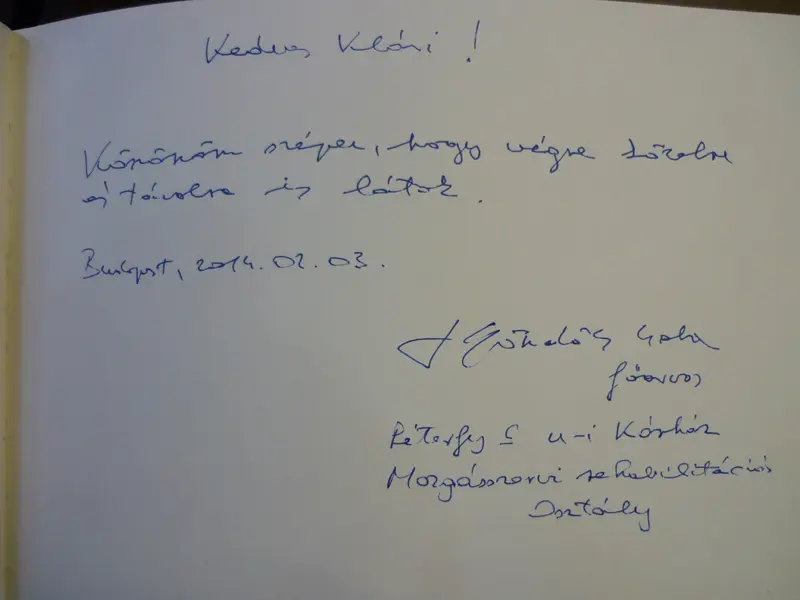 Kedves Klári!
Köszönöm szépen, hogy végre közelre
és távolra is látok.
Budapest, 2014.02.03.
főorvos
Péterfy S u-i Kórház
Mozgásszervi rehabilitációs
Osztály